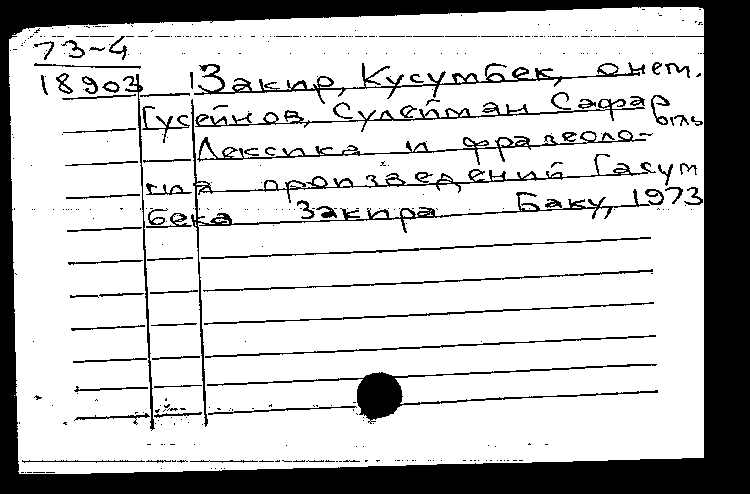 73-4
18903
Закир, Кусумбек, о нем.
Гусейнов, Сулейман Сафар
оглы
Лексика и фразеоло-
гия произведений Гасум
бека Закира Баку, 1973